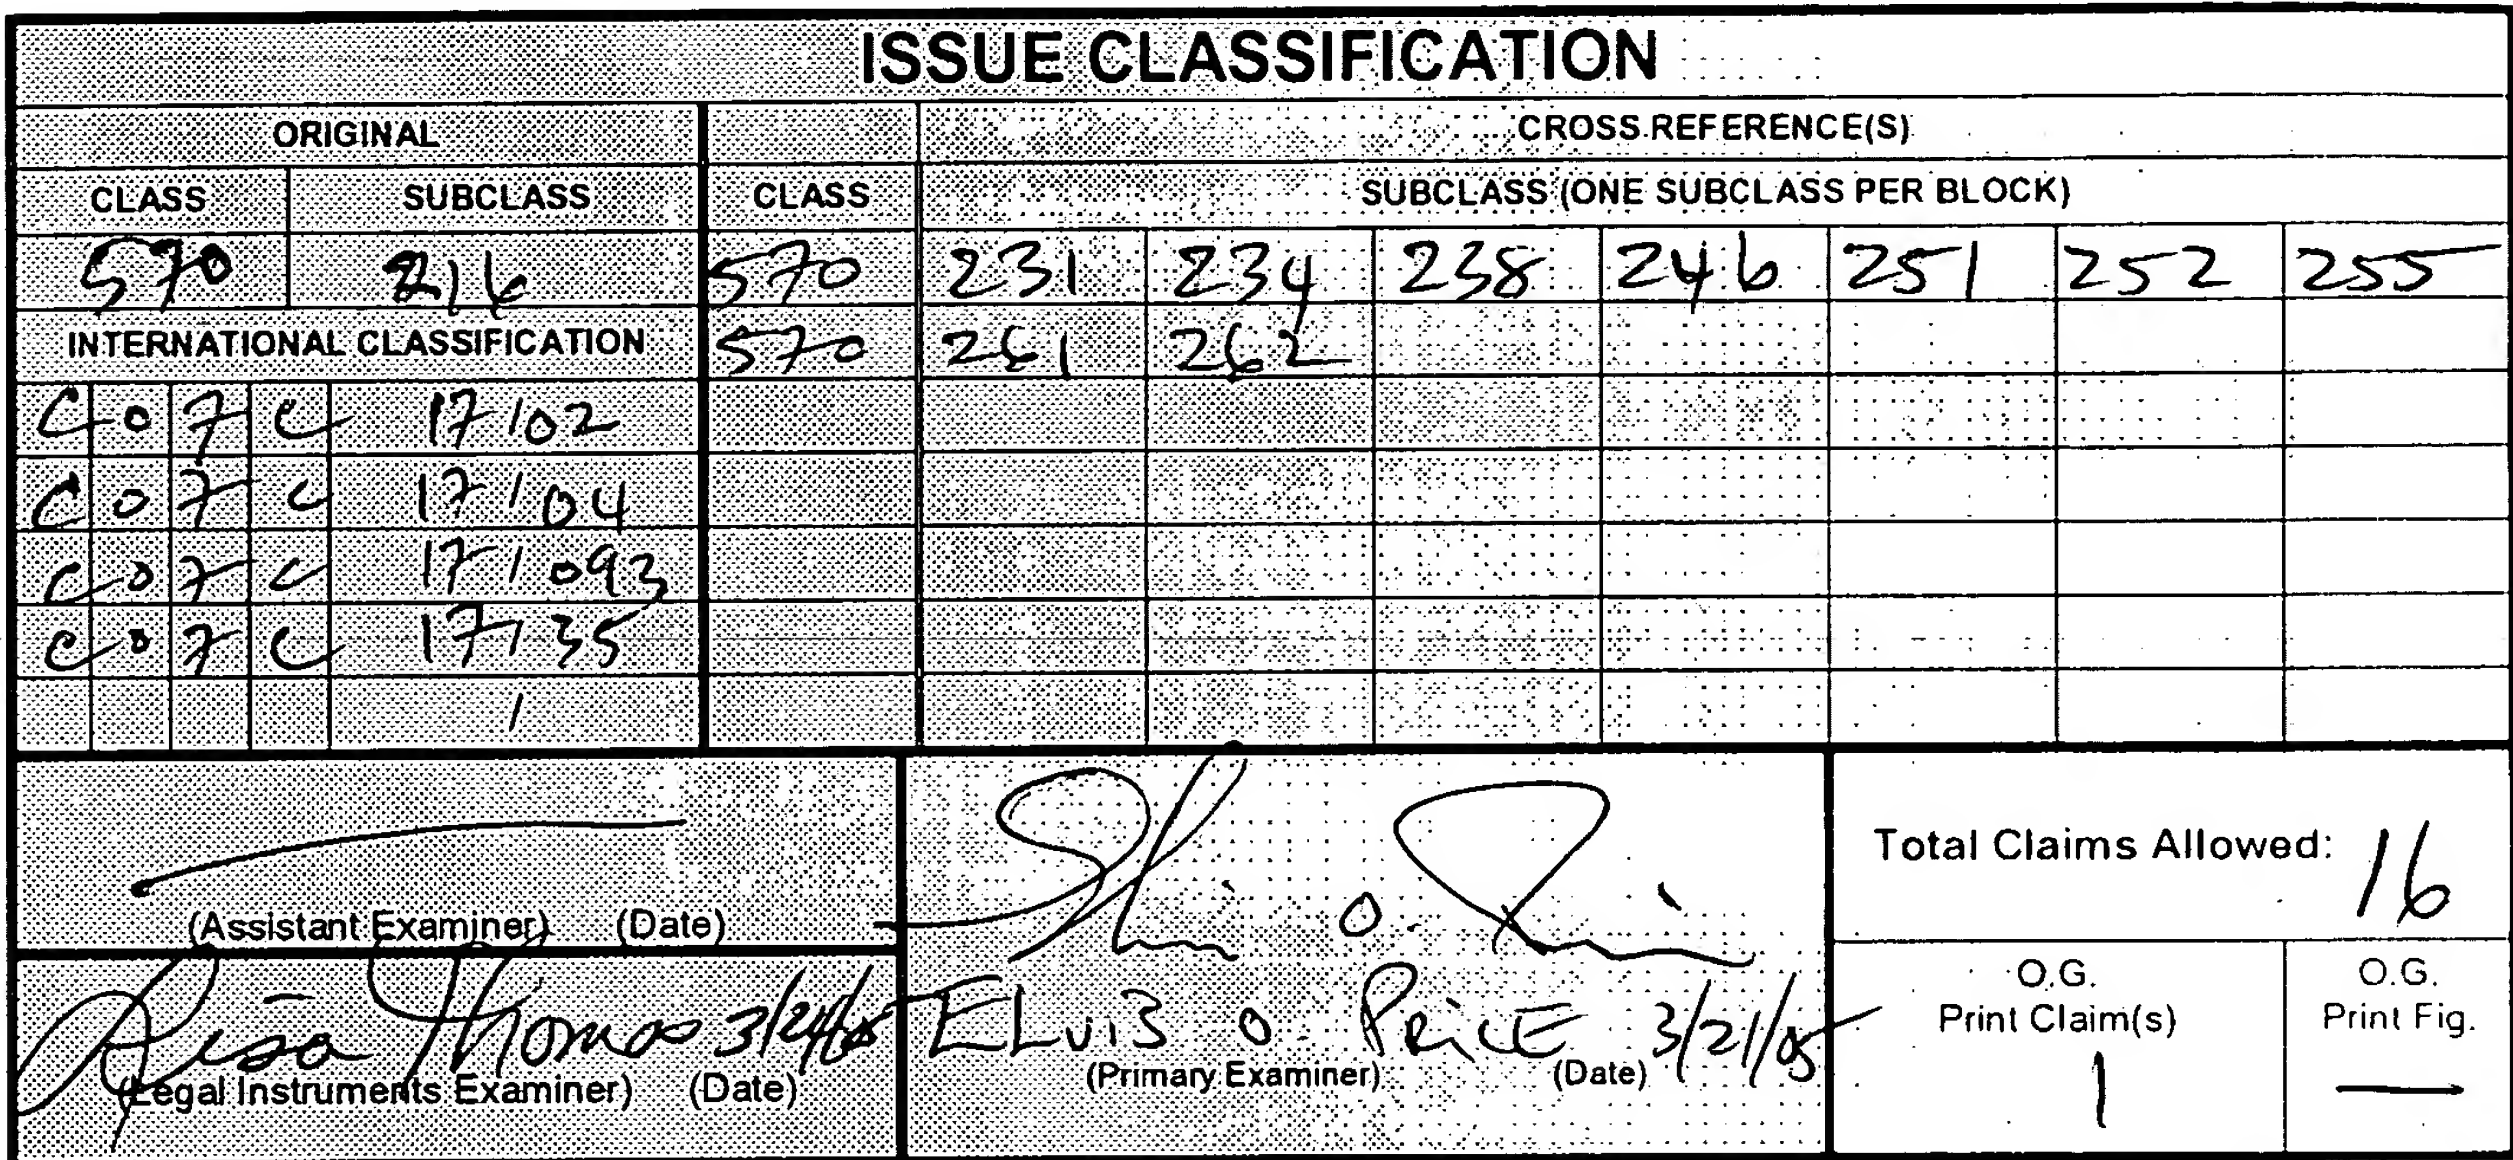 ISSUE CLASSIFICATION
ORIGINAL CROSS REFERENCE(S)
CLASS SUBCLASS CLASS SUBCLASS (ONE SUBCLASS PER BLOCK)
570 216 570 231 234 238 246 251 252 255
INTERNATIONAL CLASSIFICATION 570 261 262
C 0 7 C 17/02
C 0 7 C 17/04
C 0 7 C 17/093
C 0 7 C 17/35
/
(Assistant Examiner) (Date)
Thomas 3/24/05
(Legal Instruments Examiner) (Date)
ELviS O PRiCE 3/21/05
(Primary Examiner) (Date)
Total Claims Allowed: 16
O.G.
Print Claim(s)
1
O.G.
Print Fig.
—